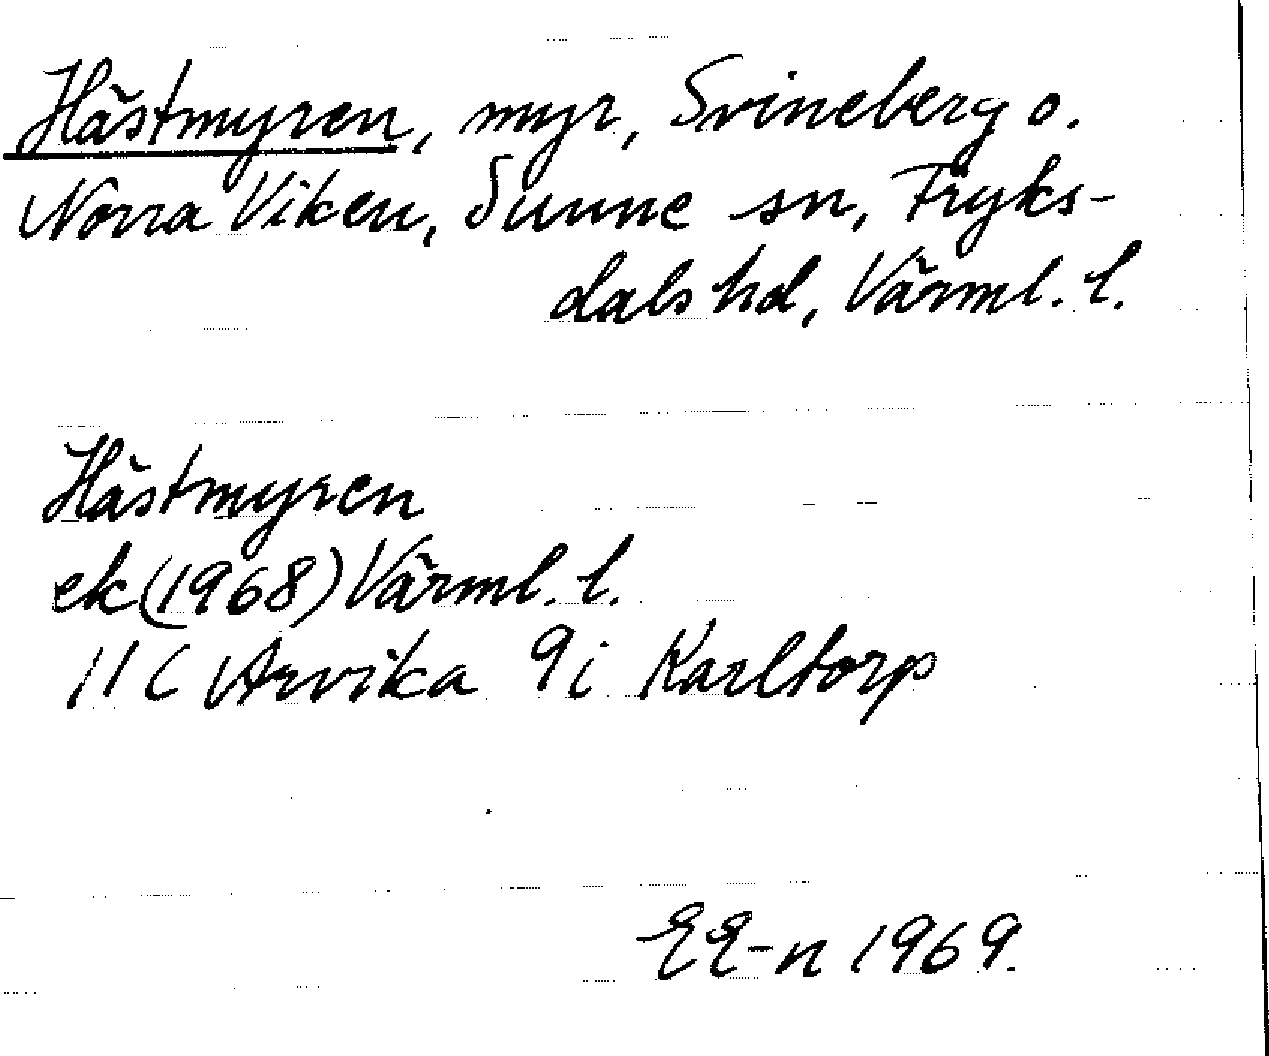 Hästmyren, myr, Svineberg o.
Norra Viken, Sunne sn, Fryks-
dals hd, Värml. l.
Hästmyren
ek (1968) Värml. l.
11 C Arvika 9i Karltorp
EE-n 1969.